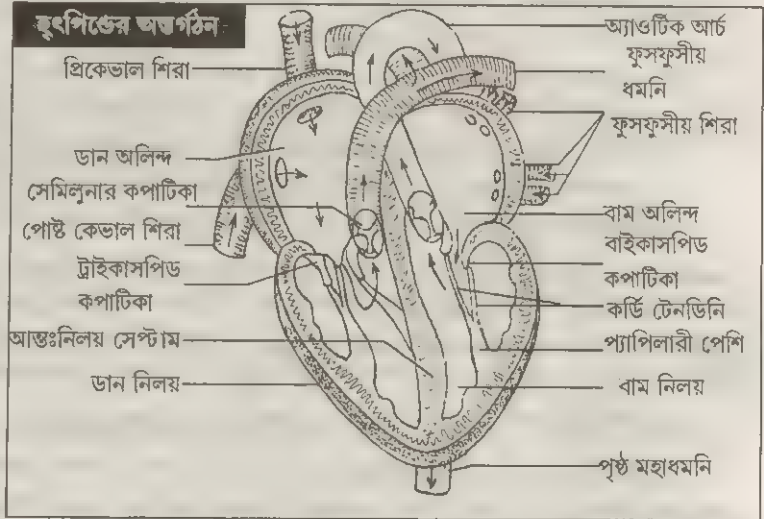 হৃৎপিণ্ডের অন্তর্গঠন
প্রিকেভাল শিরা
ডান অলিন্দ
সেমিলুনার কপাটিকা
পোষ্ট কেভাল শিরা
ট্রাইকাসপিড
কপাটিকা
আন্তঃনিলয় সেপ্টাম
ডান নিলয়
অ্যাওর্টিক আর্চ
ফুসফুসীয়
ধমনি
ফুসফুসীয় শিরা
বাম অলিন্দ
বাইকাসপিড
কপাটিকা
কর্ডি টেনডিনি
প্যাপিলারী পেশি
বাম নিলয়
পৃষ্ঠ মহাধমনি